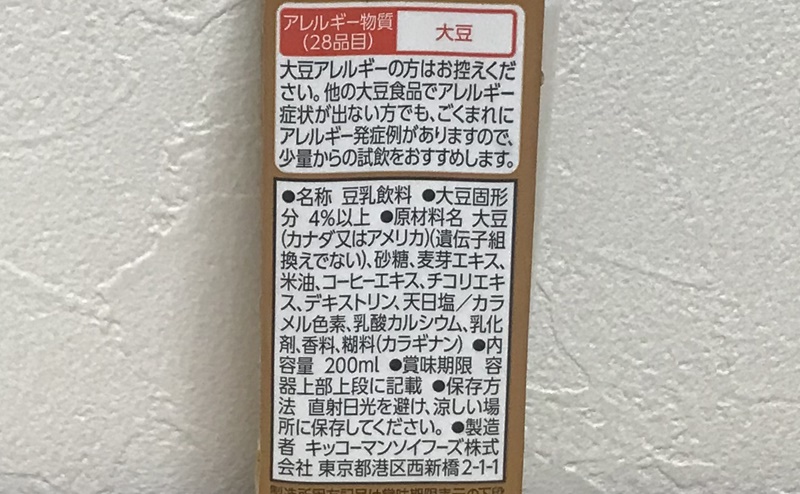 アレルギー物質
(28品目)
大豆
大豆アレルギーの方はお控えくだ
さい。他の大豆食品でアレルギー
症状が出ない方でも、ごくまれに
アレルギー発症例がありますので、
少量からの試飲をおすすめします。
●名称 豆乳飲料 ●大豆固形
分 4%以上 ●原材料名 大豆
(カナダ又はアメリカ)(遺伝子組
換えでない)、砂糖、麦芽エキス、
米油、コーヒーエキス、チコリエキ
ス、デキストリン、天日塩/カラ
メル色素、乳酸カルシウム、乳化
剤、香料、糊料(カラギナン) ●内
容量 200ml ●賞味期限 容
器上部上段に記載 ●保存方
法 直射日光を避け、涼しい場
所に保存してください。 ●製造
者 キッコーマンソイフーズ株式
会社 東京都港区西新橋2-1-1